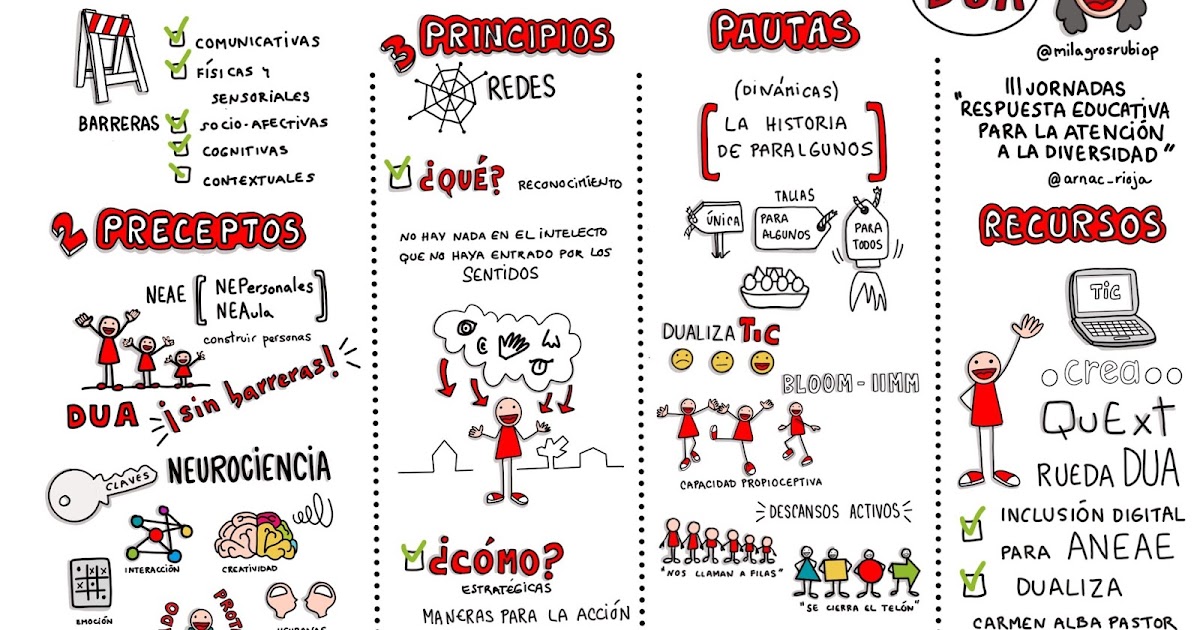 COMUNICATIVAS
FÍSICAS Y
SENSORIALES
BARRERAS
SOCIO-AFECTIVAS
COGNITIVAS
CONTEXTUALES
2 PRECEPTOS
NEAE
NEPersonales
NEAula
construir personas
DUA
¡sin barreras!
CLAVES
NEUROCIENCIA
INTERACCIÓN
CREATIVIDAD
EMOCIÓN
3 PRINCIPIOS
REDES
¿QUÉ?
RECONOCIMIENTO
NO HAY NADA EN EL INTELECTO
QUE NO HAYA ENTRADO POR LOS
SENTIDOS
¿CÓMO?
ESTRATÉGICAS
MANERAS PARA LA ACCIÓN
PAUTAS
(DINÁMICAS)
LA HISTORIA
DE PARALGUNOS
TALLAS
ÚNICA
PARA
ALGUNOS
PARA
TODOS
DUALIZA TIC
BLOOM-IIMM
CAPACIDAD PROPIOCEPTIVA
DESCANSOS ACTIVOS
"NOS LLAMAN A FILAS"
"SE CIERRA EL TELÓN"
DUA
@milagrosrubiop
III JORNADAS
"RESPUESTA EDUCATIVA
PARA LA ATENCIÓN
A LA DIVERSIDAD"
@arnac_rioja
RECURSOS
TIC
crea
QuExt
RUEDA DUA
INCLUSIÓN DIGITAL
PARA ANEAE
DUALIZA
CARMEN ALBA PASTOR